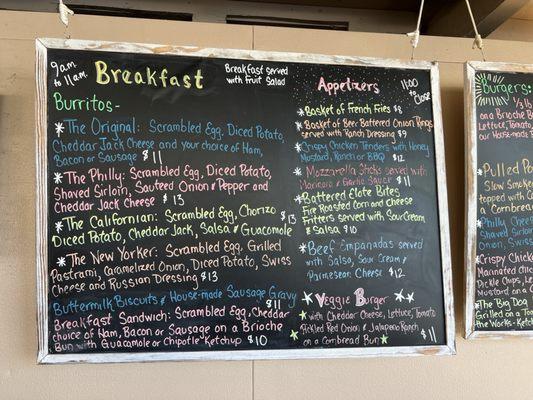 9am to 11am.
Breakfast
Breakfast served with Fruit Salad
Burritos-
The Original: Scrambled Egg, Diced Potato,
Cheddar Jack Cheese and your choice of Ham,
Bacon or Sausage $11
The Philly: Scrambled Egg, Diced Potato,
Shaved Sirloin, Sauteed Onion & Pepper and
Cheddar Jack Cheese $13
The Californian: Scrambled Egg, Chorizo $13
Diced Potato, Cheddar Jack, Salsa & Guacamole
The New Yorker: Scrambled Egg, Grilled
Pastrami, Caramelized Onion, Diced Potato, Swiss
Cheese and Russian Dressing $13
Buttermilk Biscuits & House-made Sausage Gravy $11
Breakfast Sandwich: Scrambled Egg, Cheddar
choice of Ham, Bacon or Sausage on a Brioche
Bun with Guacamole or Chipotle Ketchup $10
Appetizers
11:00 to Close
Basket of French Fries $8
Basket of Beer Battered Onion Rings
served with Ranch Dressing $9
Crispy Chicken Tenders with Honey
Mustard, Ranch or BBQ $12
Mozzarella Sticks served with
Marinara & Garlic Sauce $11
Battered Elote Bites
Fire Roasted Corn and cheese
Fritters served with Sour Cream
& Salsa $10
Beef Empanadas served
with Salsa, Sour Cream &
Parmesean Cheese $12
Veggie Burger
with Cheddar Cheese, Lettuce, Tomato
Pickled Red Onion & Jalapeno Ranch
on a Cornbread Bun $11
Burgers:
1/3 lb
on a Brioche
Lettuce, Tomato
our House-made
Pulled Por
Slow Smoke
topped with
a Cornbread
Philly Chees
Shaved Sir
Onions,
on a
Crispy Chick
Marinated
Pickle Chips,
on a
The Big Dog
Grilled on a To
the Works-Ket